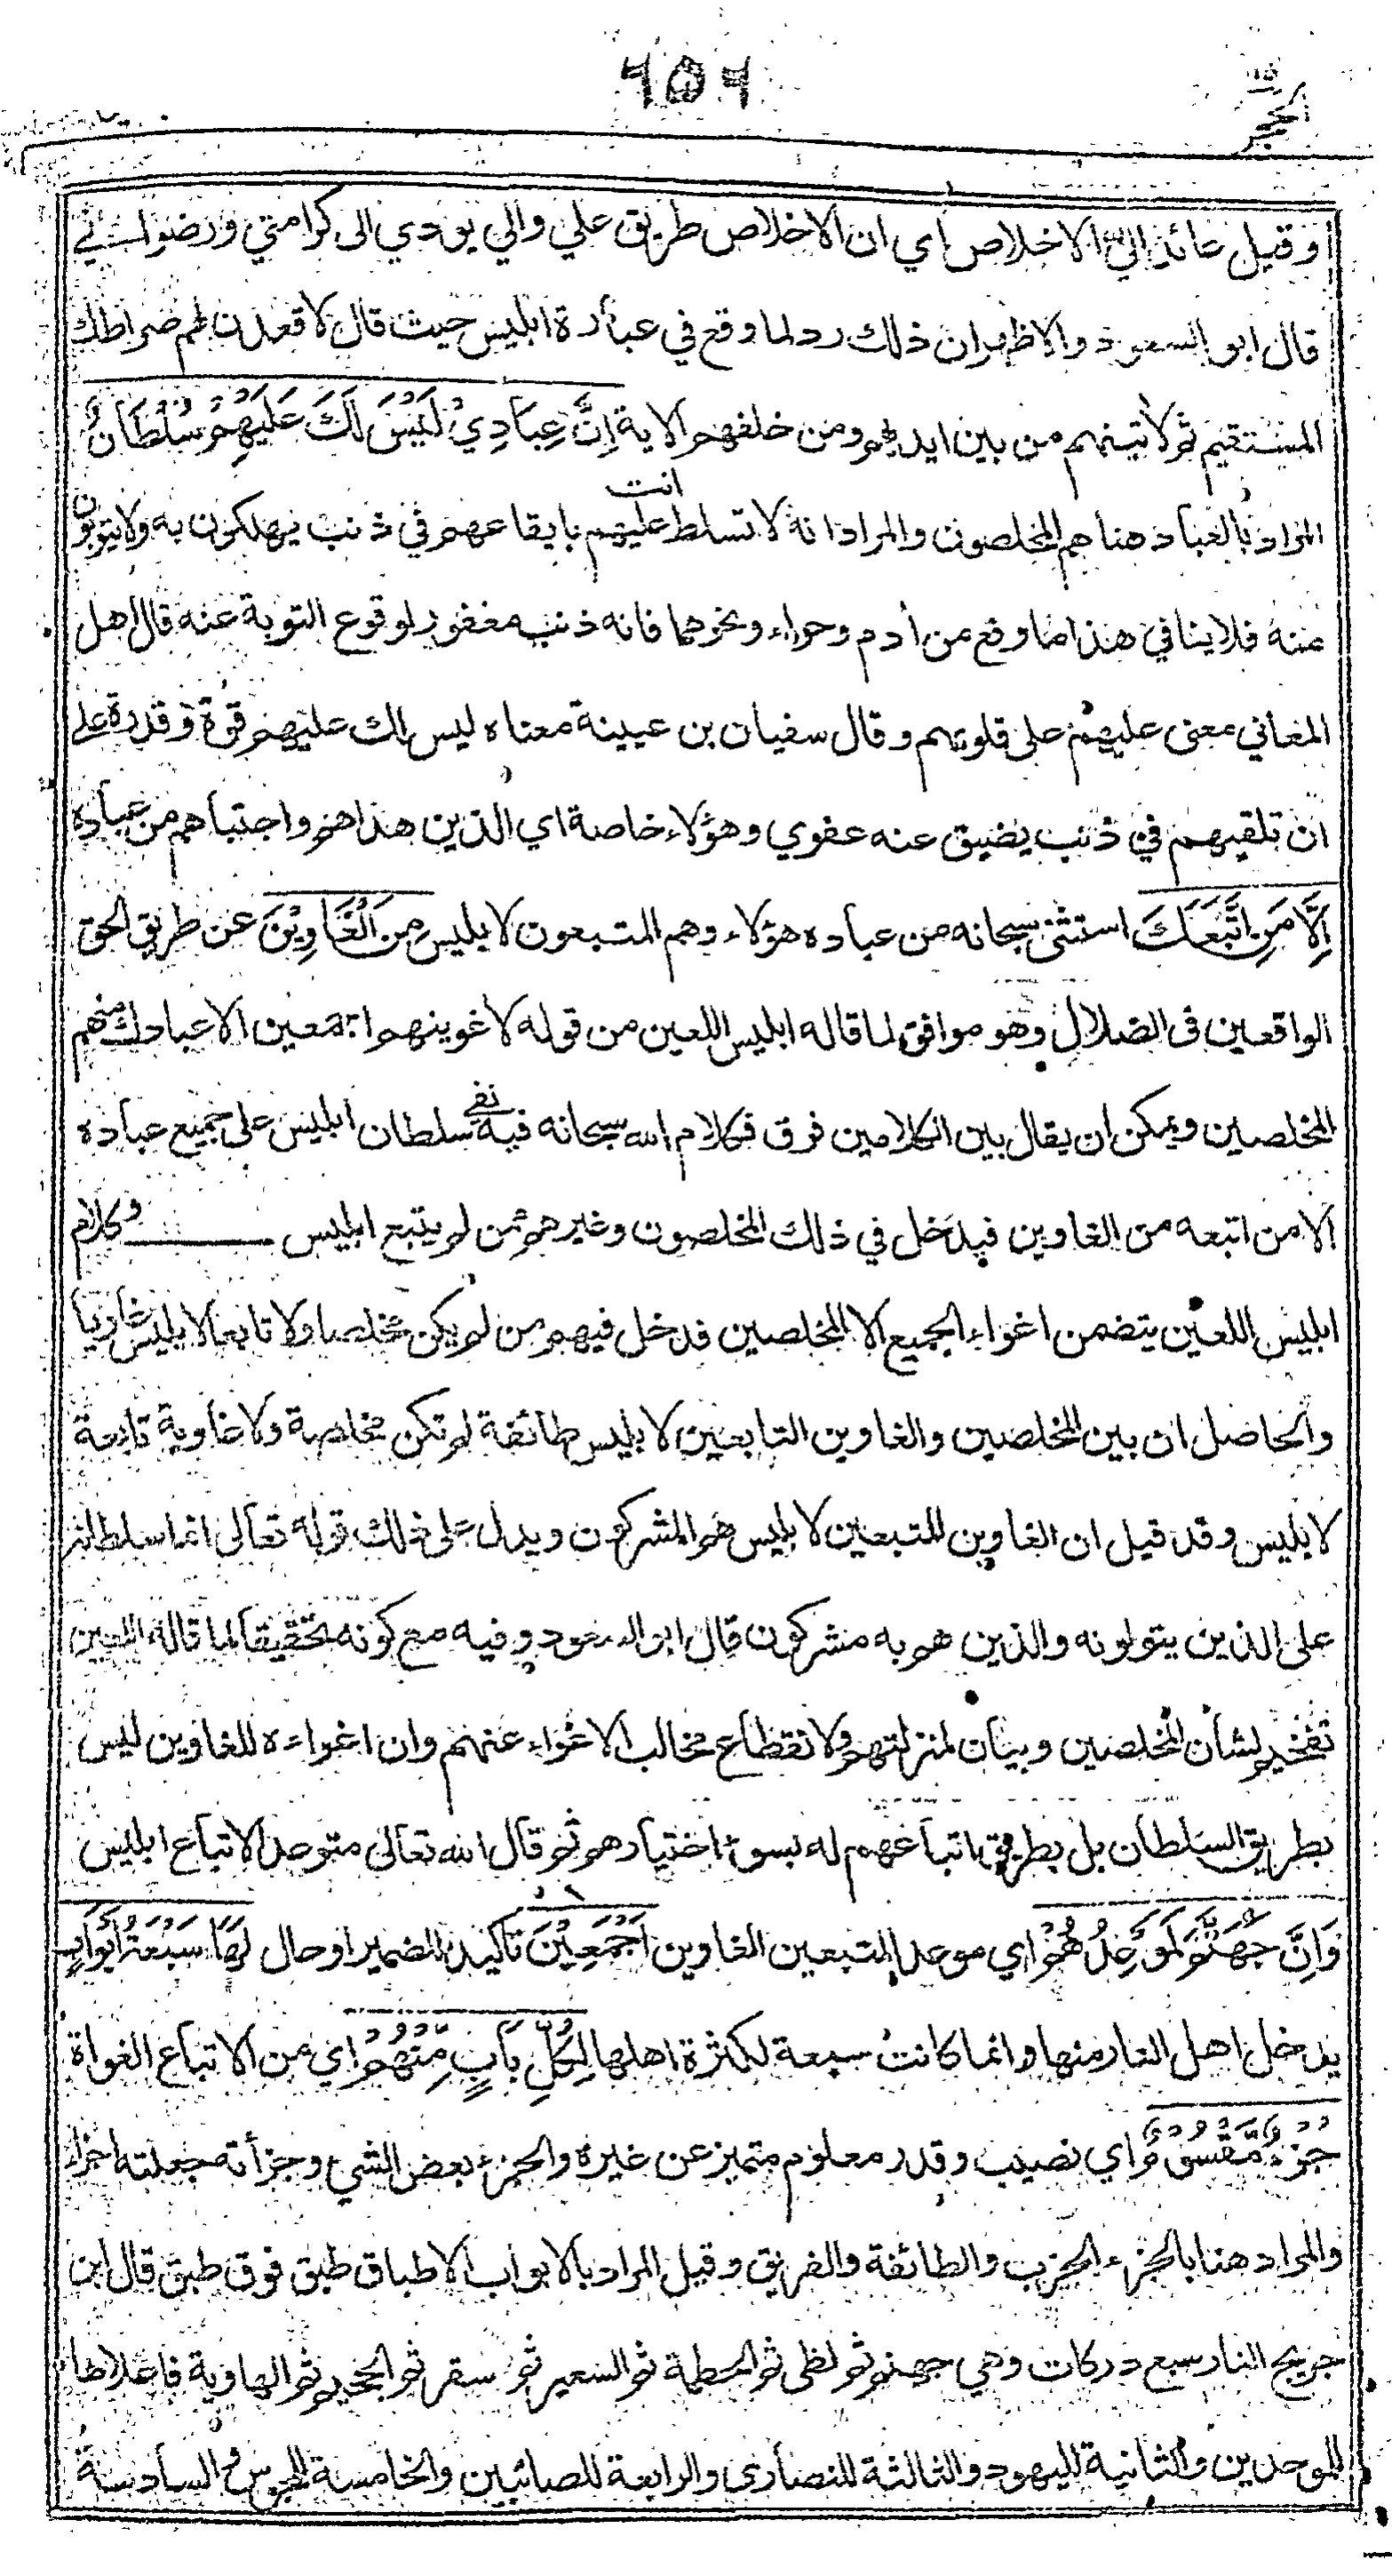 ٦٥٦
الحجر ١٥
وقيل عائد الى الاخلاص اي ان الاخلاص طريق علي والي يودي الى كرامتي ورضواني
قال ابو السعود والاظهر ان ذلك رد لما وقع في عبارة ابليس حيث قال لاقعدن لهم صراطك
المستقيم ثم لاتينهم من بين ايديهم ومن خلفهم الاية اِنَّ عِبَادِيْ لَيْسَ لَكَ عَلَيْهِمْ سُلْطَانٌ
المراد بالعباد هنا هم المخلصون والمراد انه لا تسلط انت عليهم بايقاعهم في ذنب يهلكون به ولا يتوبون
عنه فلا ينافي هذا ما وقع من أدم وحواء ونحوهما فانه ذنب مغفور لوقوع التوبة عنه قال اهل
المعاني معنى عليهم على قلوبهم وقال سفيان بن عيينة معناه ليس لك عليهم قوة وقدرة على
ان تلقيهم في ذنب يضيق عنه عفوي وهؤلاء خاصة اي الذين هداهم واجتباهم من عباده
اِلَّا مَنِ اتَّبَعَكَ استثنى سبحانه من عباده هؤلاء وهم المتبعون لابليس مِنَ الْغَاوِيْنَ عن طريق الحق
الواقعين في الضلال وهو موافق لما قاله ابليس اللعين من قوله لاغوينهم اجمعين الا عبادك منهم
المخلصين ويمكن ان يقال بين الكلامين فرق فكلام الله سبحانه فيه نفي سلطان ابليس على جميع عباده
الا من اتبعه من الغاوين فيدخل في ذلك المخلصون وغيرهم ممن لم يتبع ابليس وكلام
ابليس اللعين يتضمن اغواء الجميع الا المخلصين فدخل فيهم من لم يكن مخلصا ولا تابعا لابليس غاويا
والحاصل ان بين المخلصين والغاوين التابعين لابليس طائفة لم تكن مخلصة ولا غاوية تابعة
لابليس وقد قيل ان الغاوين للمتبعين لابليس هم المشركون ويدل على ذلك قوله تعالى انما سلطانه
على الذين يتولونه والذين هم به مشركون قال ابو السعود وفيه مع كونه تحقيقا لما قاله اللعين
تفخيم لشأن المخلصين وبيان لمنزلتهم ولانقطاع مخالب الاغواء عنهم وان اغواءه للغاوين ليس
بطريق السلطان بل بطريق اتباعهم له بسوء اختيارهم ثم قال الله تعالى متوعدا لاتباع ابليس
وَاِنَّ جَهَنَّمَ لَمَوْعِدُهُمْ اي موعد المتبعين الغاوين اَجْمَعِيْنَ تاكيد للضمير او حال لَهَا سَبْعَةُ اَبْوَابٍ
يدخل اهل النار منها وانما كانت سبعة لكثرة اهلها لِكُلِّ بَابٍ مِّنْهُمْ اي من الاتباع الغواة
جُزْءٌ مَّقْسُوْمٌ اي نصيب وقدر معلوم متميز عن غيره والجزء بعض الشيء وجزأته جعلته اجزاء
والمراد هنا بالجزء الحزب والطائفة والفريق وقيل المراد بالابواب الاطباق طبق فوق طبق قال ابن
جريج النار سبع دركات وهي جهنم ثم لظى ثم الحطمة ثم السعير ثم سقر ثم الجحيم ثم الهاوية فاعلاها
للموحدين والثانية لليهود والثالثة للنصارى والرابعة للصائبين والخامسة للمجوس والسادسة